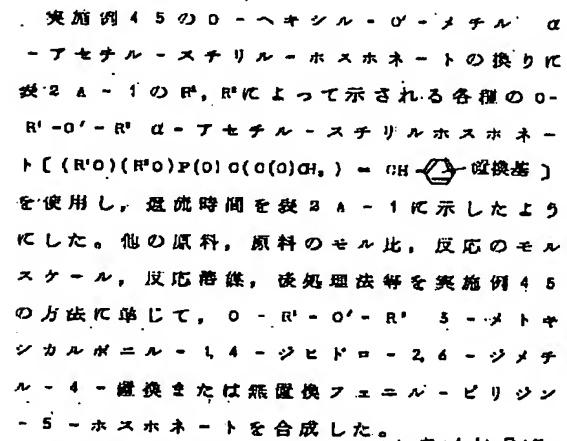 実施例45のO-ヘキシル-O'-メチル α
-アセチル-スチリル-ホスホネートの換りに
表2A-1のR¹,R²によって示される各種のO-
R¹-O'-R² α-アセチル-スチリルホスホネー
ト[(R¹O)(R²O)P(O)C(C(O)CH₃)=CH-置換基]
を使用し,還流時間を表2A-1に示したよう
にした。他の原料,原料のモル比,反応のモル
スケール,反応溶媒,後処理法等を実施例45
の方法に準じて,O-R¹-O'-R² 3-メトキ
シカルボニル-1,4-ジヒドロ-2,6-ジメチ
ル-4-置換または無置換フェニル-ピリジン
-5-ホスホネートを合成した。